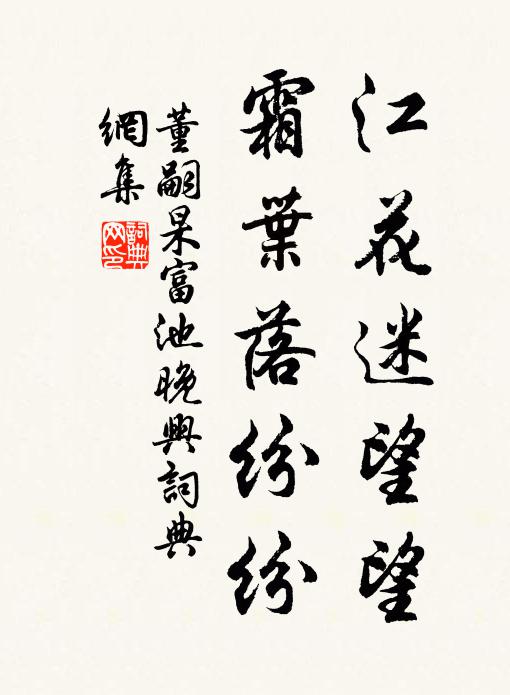 江花迷望望
霜葉落紛紛
董嗣杲富池晚興詞典
網集
詞典网印